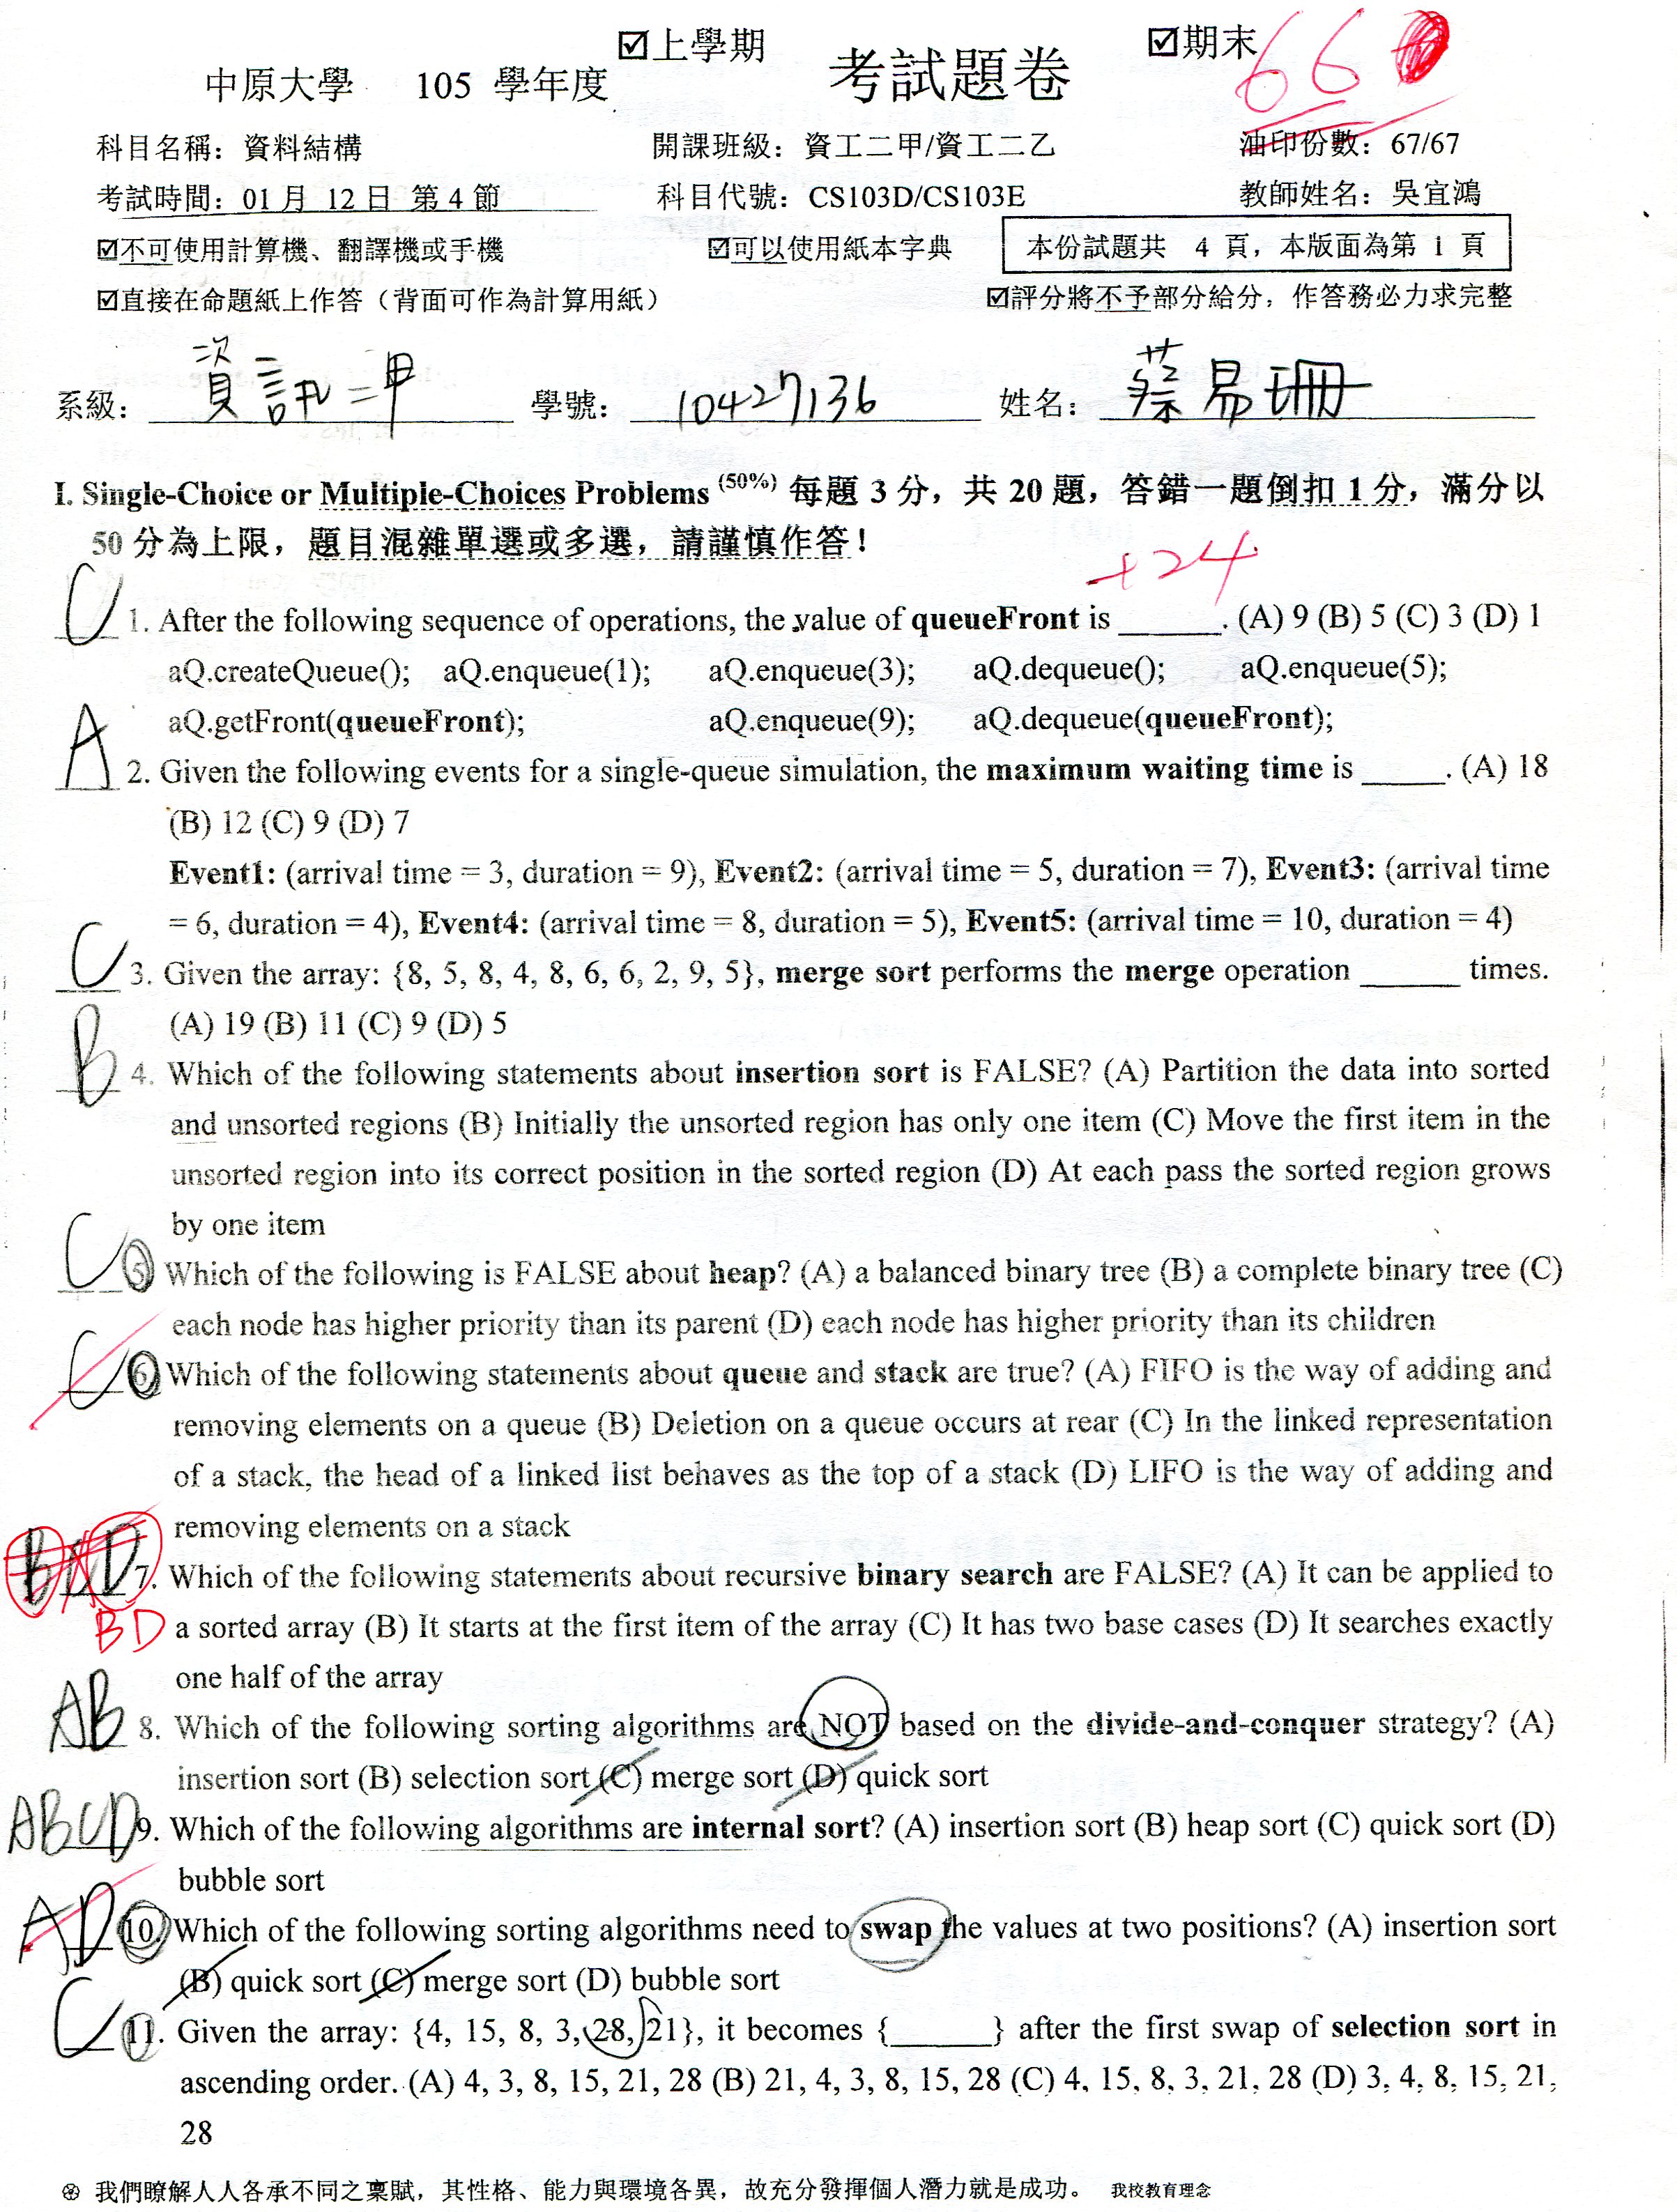 ☑上學期 ☑期末
66
中原大學 105 學年度 考試題卷
科目名稱：資料結構 開課班級：資工二甲/資工二乙 油印份數：67/67
考試時間：01 月 12 日 第 4 節 科目代號：CS103D/CS103E 教師姓名：吳宜鴻
☑不可使用計算機、翻譯機或手機 ☑可以使用紙本字典 本份試題共 4 頁，本版面為第 1 頁
☑直接在命題紙上作答（背面可作為計算用紙） ☑評分將不予部分給分，作答務必力求完整
系級：資訊二甲 學號：10427136 姓名：蔡易珊
I. Single-Choice or Multiple-Choices Problems (50%) 每題 3 分，共 20 題，答錯一題倒扣 1 分，滿分以
50 分為上限，題目混雜單選或多選，請謹慎作答！
+24
C 1. After the following sequence of operations, the value of queueFront is ______. (A) 9 (B) 5 (C) 3 (D) 1
aQ.createQueue(); aQ.enqueue(1); aQ.enqueue(3); aQ.dequeue(); aQ.enqueue(5);
aQ.getFront(queueFront); aQ.enqueue(9); aQ.dequeue(queueFront);
A 2. Given the following events for a single-queue simulation, the maximum waiting time is _____. (A) 18
(B) 12 (C) 9 (D) 7
Event1: (arrival time = 3, duration = 9), Event2: (arrival time = 5, duration = 7), Event3: (arrival time
= 6, duration = 4), Event4: (arrival time = 8, duration = 5), Event5: (arrival time = 10, duration = 4)
C 3. Given the array: {8, 5, 8, 4, 8, 6, 6, 2, 9, 5}, merge sort performs the merge operation ______ times.
(A) 19 (B) 11 (C) 9 (D) 5
B 4. Which of the following statements about insertion sort is FALSE? (A) Partition the data into sorted
and unsorted regions (B) Initially the unsorted region has only one item (C) Move the first item in the
unsorted region into its correct position in the sorted region (D) At each pass the sorted region grows
by one item
C 5. Which of the following is FALSE about heap? (A) a balanced binary tree (B) a complete binary tree (C)
each node has higher priority than its parent (D) each node has higher priority than its children
C 6. Which of the following statements about queue and stack are true? (A) FIFO is the way of adding and
removing elements on a queue (B) Deletion on a queue occurs at rear (C) In the linked representation
of a stack, the head of a linked list behaves as the top of a stack (D) LIFO is the way of adding and
removing elements on a stack
7. Which of the following statements about recursive binary search are FALSE? (A) It can be applied to
BD a sorted array (B) It starts at the first item of the array (C) It has two base cases (D) It searches exactly
one half of the array
AB 8. Which of the following sorting algorithms are NOT based on the divide-and-conquer strategy? (A)
insertion sort (B) selection sort (C) merge sort (D) quick sort
ABCD 9. Which of the following algorithms are internal sort? (A) insertion sort (B) heap sort (C) quick sort (D)
bubble sort
AD 10. Which of the following sorting algorithms need to swap the values at two positions? (A) insertion sort
(B) quick sort (C) merge sort (D) bubble sort
C 11. Given the array: {4, 15, 8, 3, 28, 21}, it becomes {______} after the first swap of selection sort in
ascending order. (A) 4, 3, 8, 15, 21, 28 (B) 21, 4, 3, 8, 15, 28 (C) 4, 15, 8, 3, 21, 28 (D) 3, 4, 8, 15, 21,
28
我們瞭解人人各承不同之稟賦，其性格、能力與環境各異，故充分發揮個人潛力就是成功。 我校教育理念